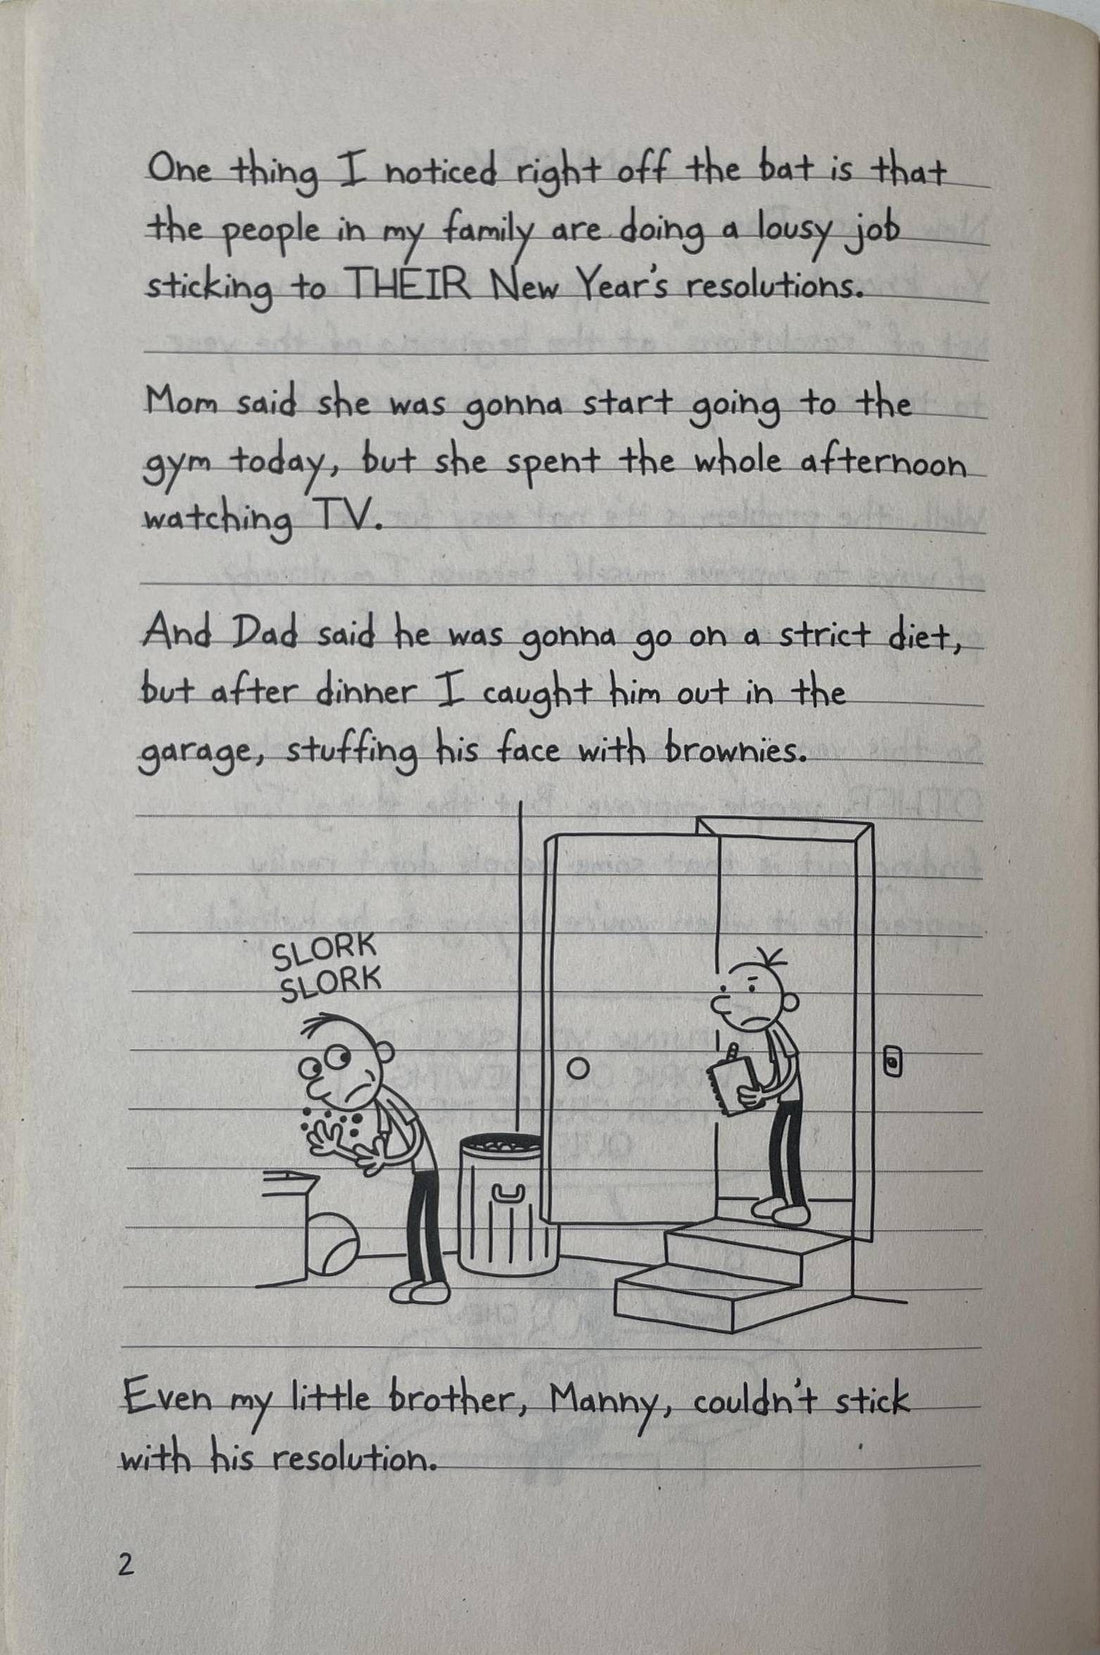 One thing I noticed right off the bat is that
the people in my family are doing a lousy job
sticking to THEIR New Year's resolutions.
Mom said she was gonna start going to the
gym today, but she spent the whole afternoon
watching TV.
And Dad said he was gonna go on a strict diet,
but after dinner I caught him out in the
garage, stuffing his face with brownies.
SLORK
SLORK
Even my little brother, Manny, couldn't stick
with his resolution.
2